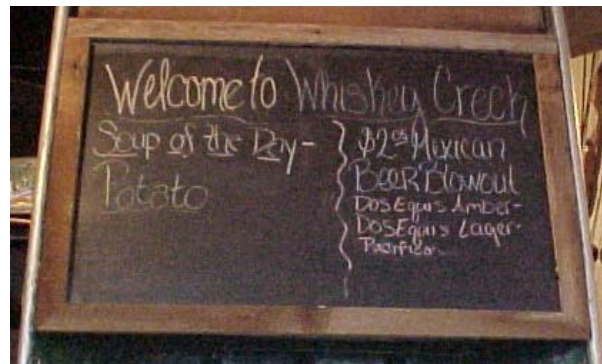 Welcome to Whiskey Creek
Soup of the Day-
Potato
$2.05 Mexican
Beer Blowout
Dos Equis Amber-
Dos Equis Lager-
Pacifico